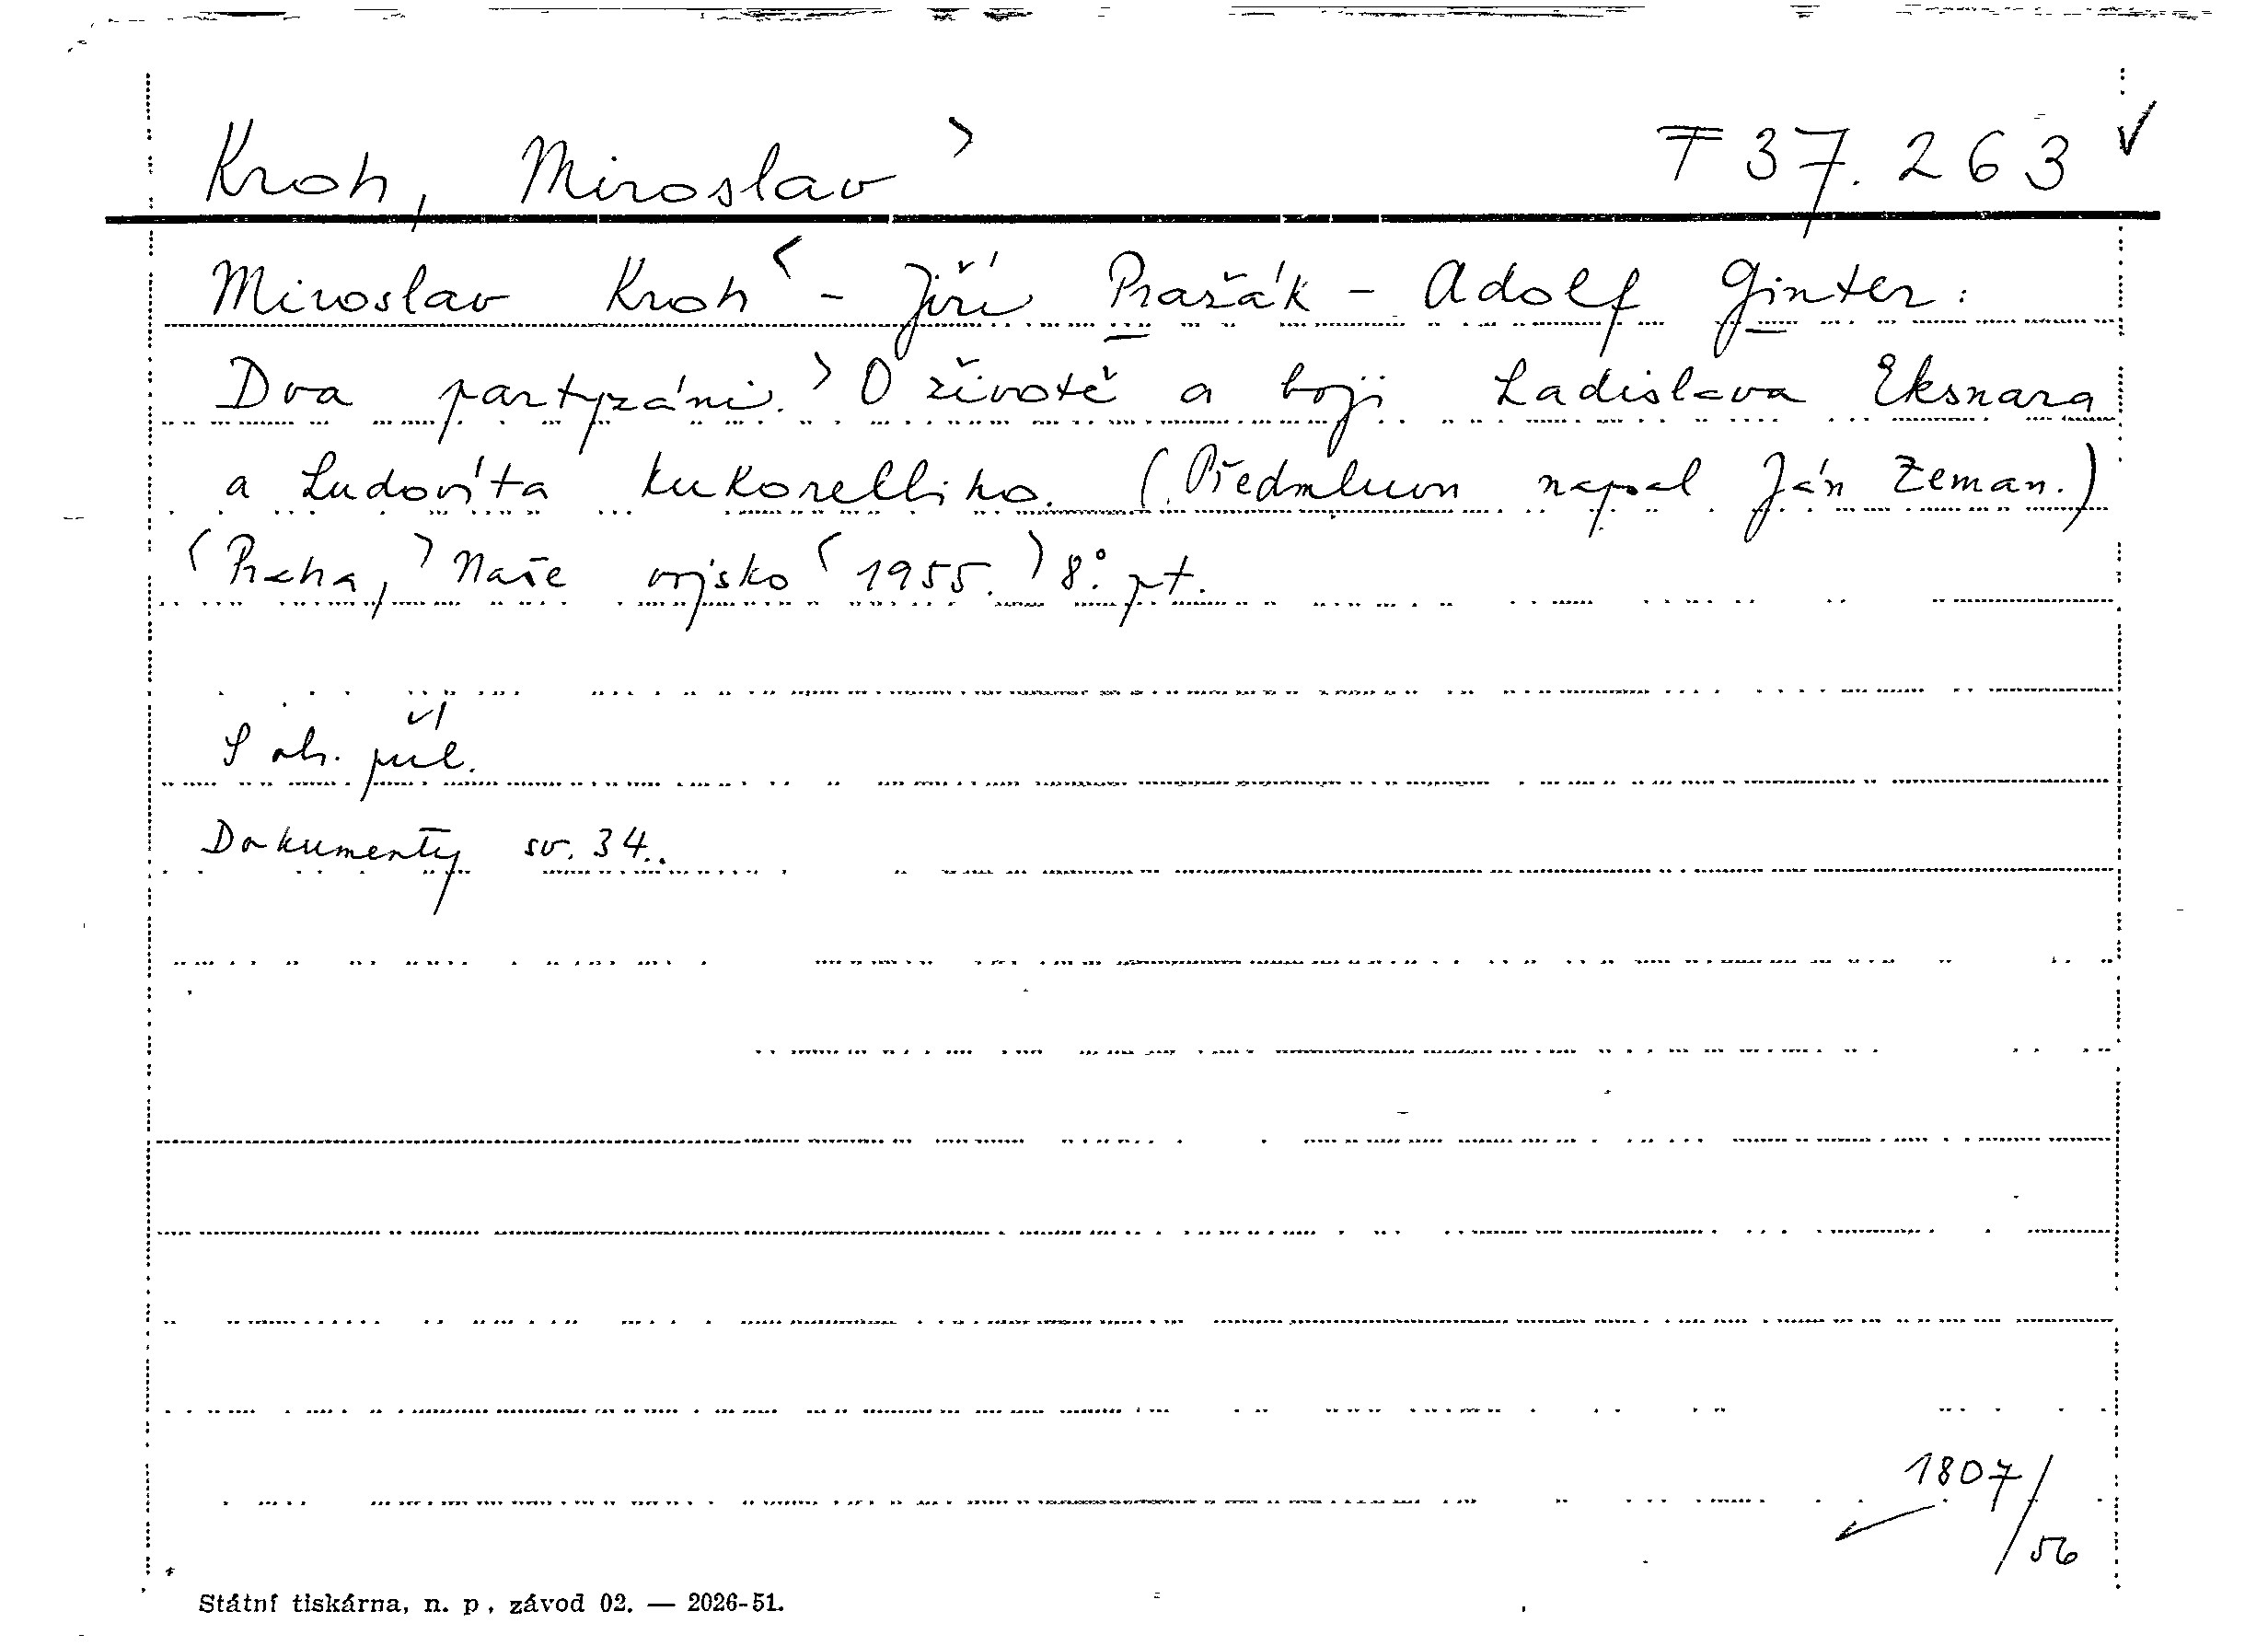 Kroh, Miroslav> T 37.263 ✓
Miroslav Kroh< - Jiří Pražák - Adolf Ginter:
Dva partyzáni.> O životě a boji Ladislava Eksnara
a Ludovíta Kukorelliho. (Předmluvu napsal Ján Zeman.)
<Praha,> Naše vojsko <1955.> 8°. pt.
S ob. příl.
Dokumenty sv. 34.
1807/56
Státní tiskárna, n. p., závod 02. — 2026-51.